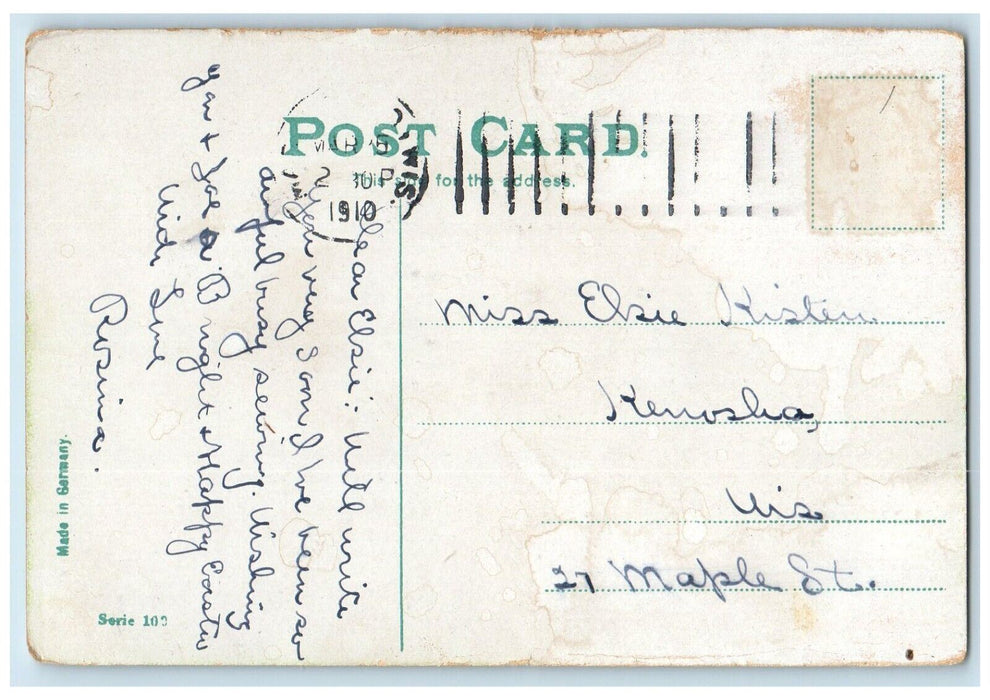 POST CARD.
This side for the address.
WIS.
MAR
2
30 P
1910
Dear Elsie: Will write
you very soon I've been so
awful busy sewing. Wishing
you & Joe a Bright & Happy Easter
With Love
Rosina.
Miss Elsie Kisten
Kenosha,
Wis
27 Maple St.
Made in Germany.
Serie 109